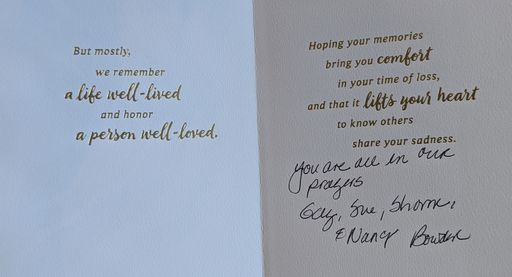 But mostly,
we remember
a life well-lived
and honor
a person well-loved.
Hoping your memories
bring you comfort
in your time of loss,
and that it lifts your heart
to know others
share your sadness.
you are all in our
prayers
Gay, Sue,
& Nancy